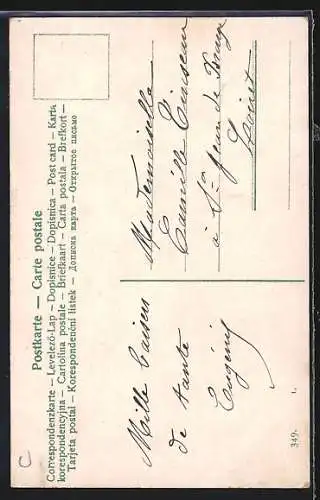 Postkarte — Carte postale
Correspondenzkarte — Levelező-Lap — Dopisnice — Dopisnica — Post card — Karta
korespondencyjna — Cartolina postale — Briefkaart — Carta postala — Brefkort —
Tarjeta postal — Korespondenční listek — Дописна карта — Открытое письмо
Mille baisers
de tante
Eugénie
Mademoiselle
Camille
à St Jean de
349. 1.
C